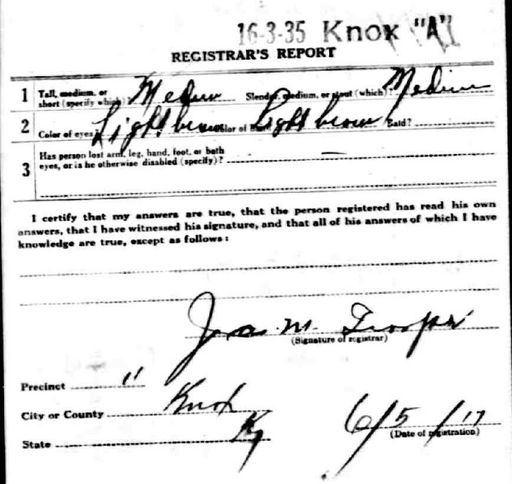 16-3-35 Knox "A"
REGISTRAR'S REPORT
1 Tall, medium, or short (specify which)? Medium Slender, medium, or stout (which)? Medium
2 Color of eyes? Light brown Color of hair? Light brown Bald?
3 Has person lost arm, leg, hand, foot, or both eyes, or is he otherwise disabled (specify)?
I certify that my answers are true, that the person registered has read his own
answers, that I have witnessed his signature, and that all of his answers of which I have
knowledge are true, except as follows:
Jas. M.
(Signature of registrar)
Precinct 11
City or County Knox
State Ky
6/5/17
(Date of registration)